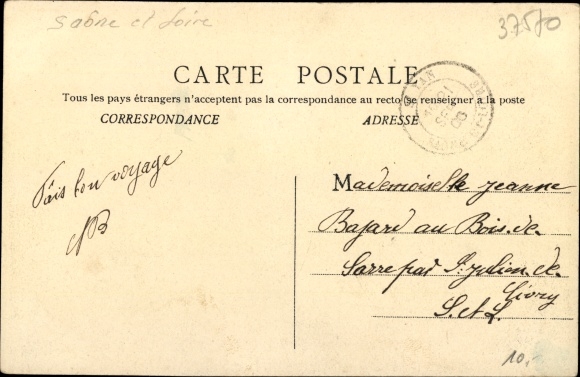 Saône et Loire
37510
CARTE POSTALE
Tous les pays étrangers n'acceptent pas la correspondance au recto (se renseigner à la poste
CORRESPONDANCE
ADRESSE
Fais bon voyage
NB
Mademoiselle Jeanne
Bajard au Bois de
Sarre par St Julien de
Civry
S. et L.
10,-